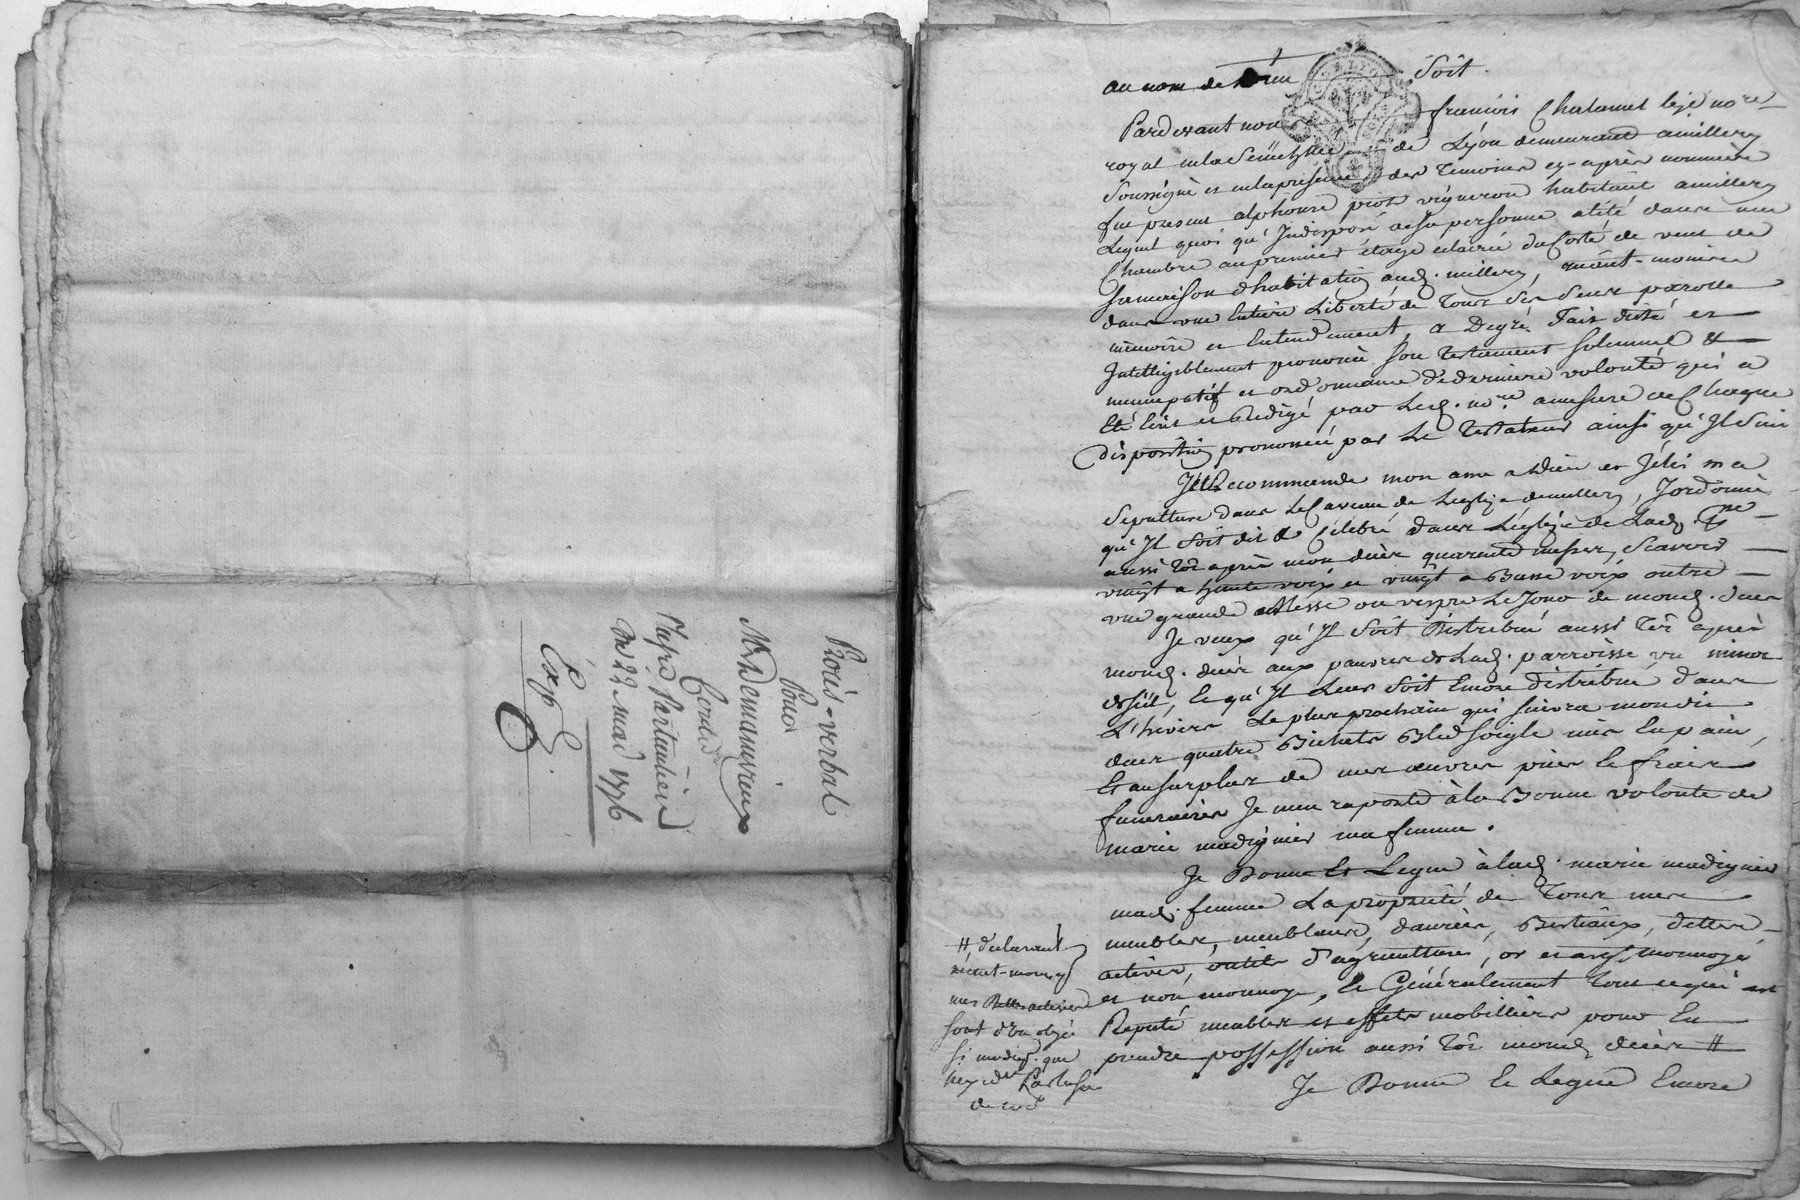 Procès-verbal
Pour
Mr Demanrieux
Contre
Mapre Parturière
Du 22 mai 1776
Exp
au nom de Dieu Soit
Pardevant nous françois Chalamel lejé nore
royal en la Sénéchssée de Lyon demeurant a millery
Soussigné et en la présence des temoins cy-après nommés
fut present alphonse piot vigneron habitant a millery
Lequel quoi qu'Indisposé de sa personne alité dans une
Chambre au premier étage éclairée du Costé de vent de
sa maison d'habitation aud. millery, néant-moins
dans une Entiere Liberté de tous ses Sens parolle
mémoire et Entendement, a Degré fait dicté et
Intelligiblement prononcé son testament solemnel &
nuncupatif et ordonnance de derniere volonté qui a
été écrit et Rédigé par Led. nore a mesure de Chaque
disposition prononcée par Le testateur ainsi qu'Il Suit
Je Recommande mon ame a Dieu et J'élis ma
Sepulture dans Le Caveau de L'eglize de millery, J'ordonne
qu'Il Soit dit & Célébré dans L'églize de Lad. psse
aussi tôt après mon décès quarente messes, Scavoir
vingt a haute voix et vingt a Basse voix outre
une grande Messe ou vespre Le Jour de mond. décès
Je veux qu'Il Soit Distribué aussi tôt après
mond. décès aux pauvres de Lad. parroisse un minot
de sel, et qu'Il Leur Soit Encore distribué dans
L'hiver Le plus prochain qui suivra mondit
décès quatre Bichets Bled soigle mis En pain,
Et au surplus de mes œuvres pies et fraix
funeraires Je men raporte à la Bonne volonté de
marie madignier ma femme.
Je Donne et Legue à lad. marie madignier
mad. femme La propriété de tous mes
meubles, meublants, danrées, Bestiaux, dettes
actives, outils d'agriculture, or et argt monnoyé
et non monnoyé, et Généralement tout ce qui est
Reputé meubles et effets mobilliers pour En
prendre possession aussi tôt mond. décès #
# declarant
néant-moins q
mes Dettes actives
sont d'un objet
si modiq. que
Je Donne et Legue Encore